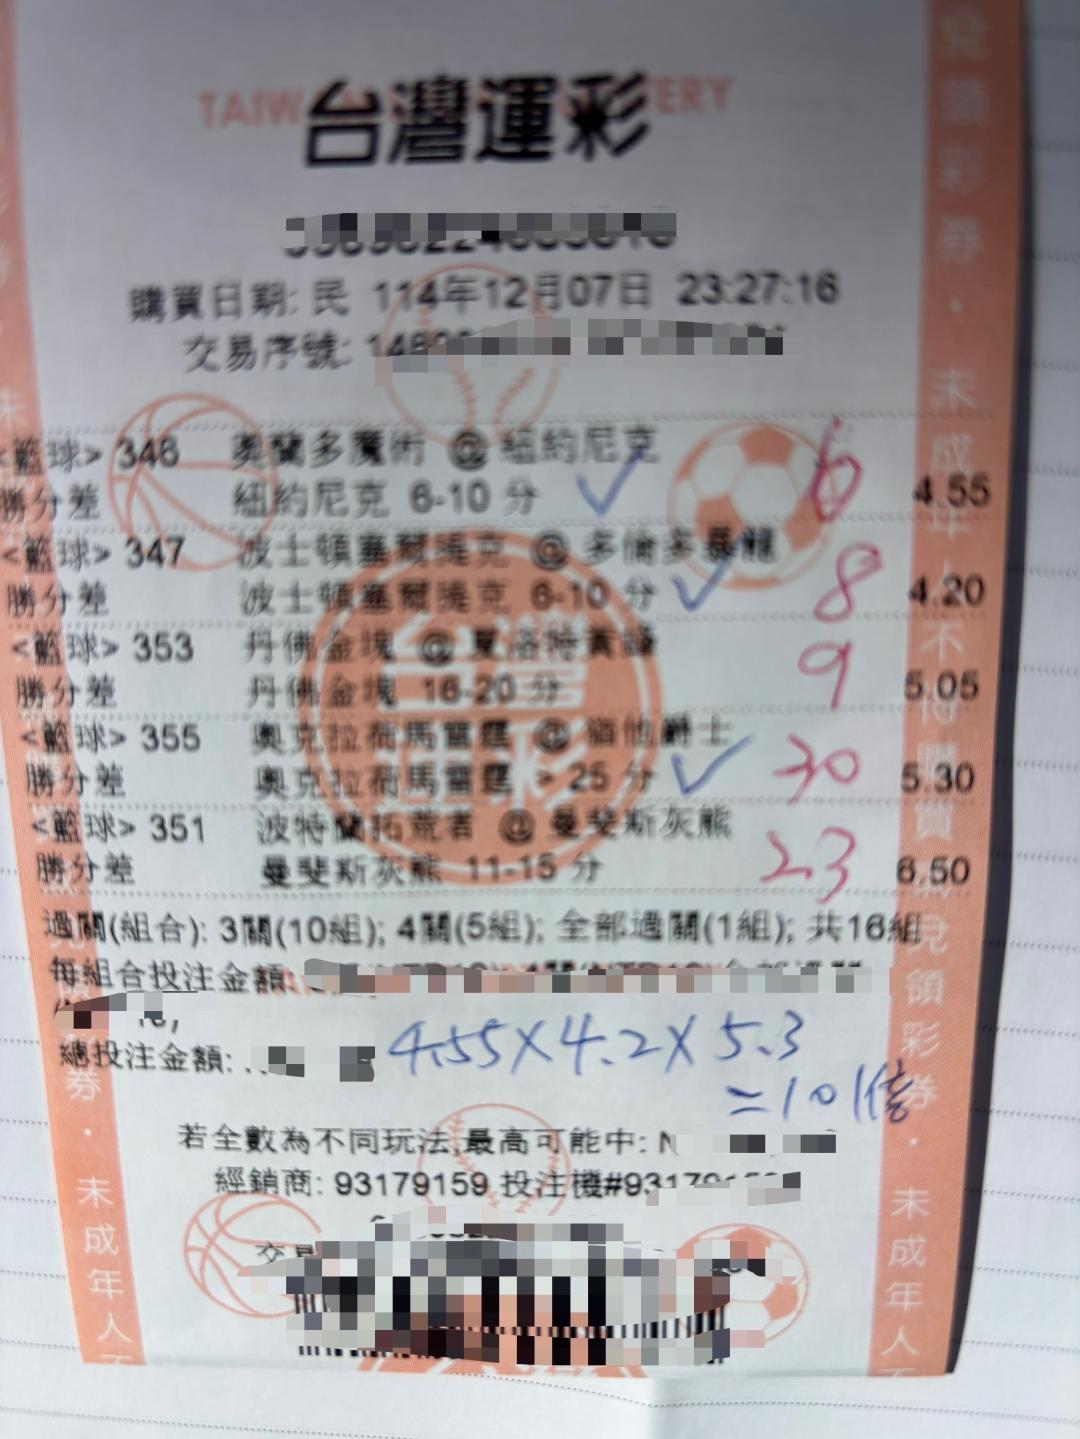 台灣運彩
購買日期: 民 114年12月07日 23:27:16
交易序號:
<籃球> 346 奧蘭多魔術 @ 紐約尼克 6
勝分差 紐約尼克 6-10 分 4.55
<籃球> 347 波士頓塞爾提克 @ 多倫多暴龍 8
勝分差 波士頓塞爾提克 6-10 分 4.20
<籃球> 353 丹佛金塊 @ 夏洛特黃蜂 9
勝分差 丹佛金塊 16-20 分 5.05
<籃球> 355 奧克拉荷馬雷霆 @ 猶他爵士
勝分差 奧克拉荷馬雷霆 > 25 分 30 5.30
<籃球> 351 波特蘭拓荒者 @ 曼斐斯灰熊
勝分差 曼斐斯灰熊 11-15 分 23 6.50
過關(組合): 3關(10組); 4關(5組); 全部過關(1組); 共16組
每組合投注金額:
總投注金額:
4.55×4.2×5.3
=101倍
若全數為不同玩法,最高可能中: N
經銷商: 93179159 投注機#93179159
未成年人